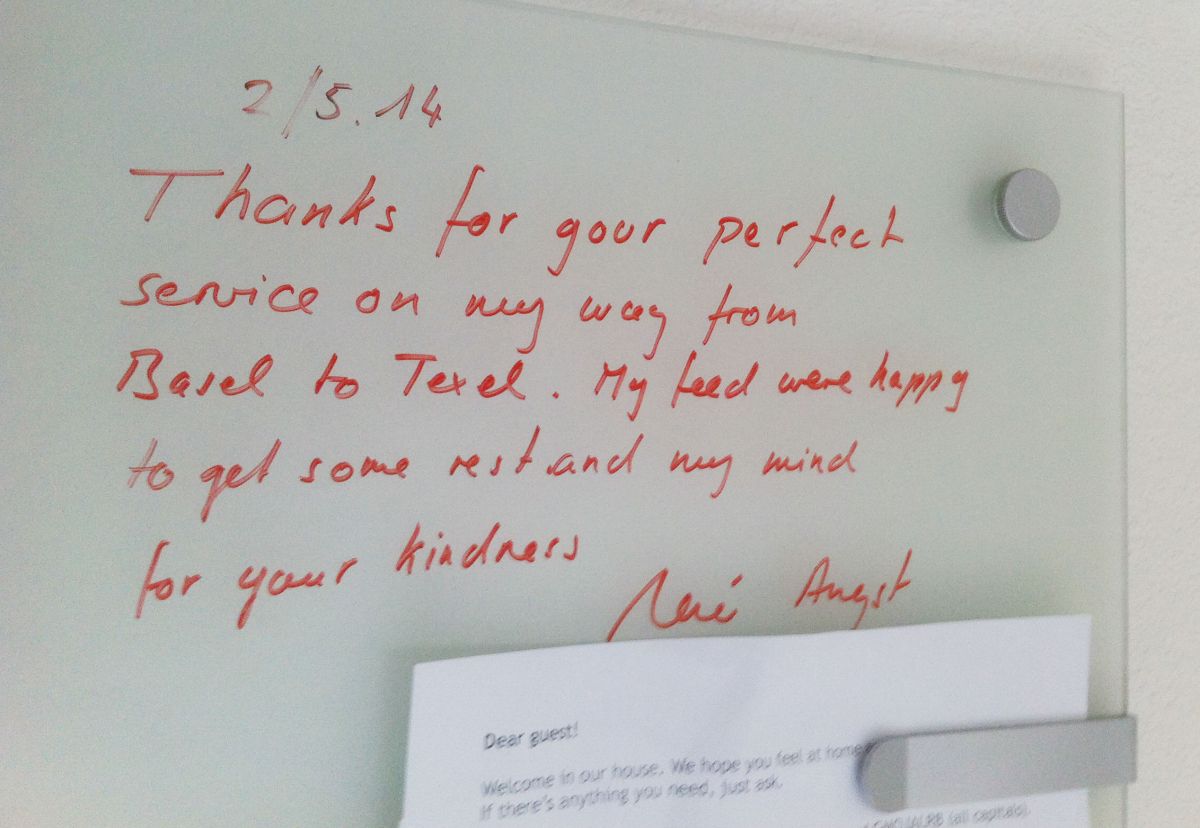 2/5.14
Thanks for your perfect
service on my way from
Basel to Texel. My feed were happy
to get some rest and my mind
for your kindness
René Angst
Dear guest!
Welcome in our house. We hope you feel at home
If there's anything you need, just ask.
(all capitals).